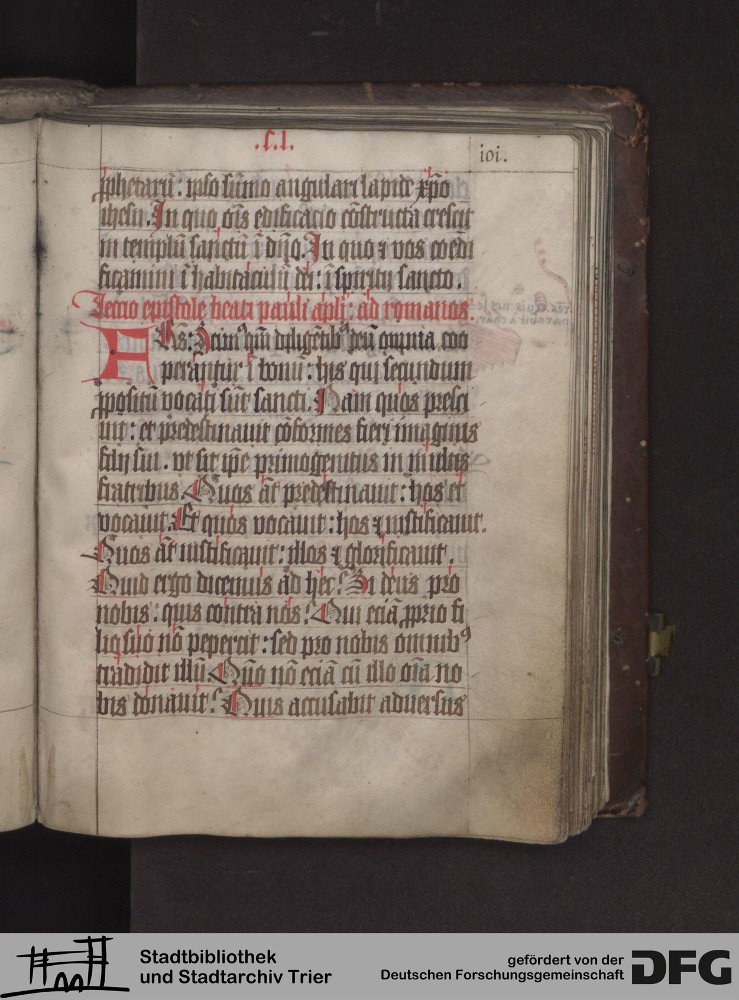 .c.i.
ioi.
ꝓphetarū: ipso sūmo angulari lapide xp̄o
ihesu. In quo oīs edificacio cōstructa crescit
in templū sanctū ī dn̄o. In quo ⁊ vos coedi
ficamini ī habitaculū dei: ī spiritu sancto.
Lectio epistole beati pauli apl̄i: ad romanos.
FRēs: Scimꝰ qm̄ diligētibꝰ deū omnia coo
perantur ī bonū: his qui secundum
ꝓpositū vocati sūt sancti. Nam quos presci
uit: et predestinauit cōformes fieri imaginis
filij sui. vt sit ip̄e primogenitus in multis
fratribus. Quos āt predestinauit: hos et
vocauit. Et quos vocauit: hos ⁊ iustificauit.
Quos āt iustificauit: illos ⁊ glorificauit.
Quid ergo dicemus ad hec? Si deus pro
nobis: quis contra nos? Qui eciā ꝓprio fi
lio suo nō pepercit: sed pro nobis omnibꝰ
tradidit illū Quō nō eciā cū illo oīa no
bis donauit? Quis accusabit aduersus
Stadtbibliothek
und Stadtarchiv Trier
gefördert von der
Deutschen Forschungsgemeinschaft
DFG